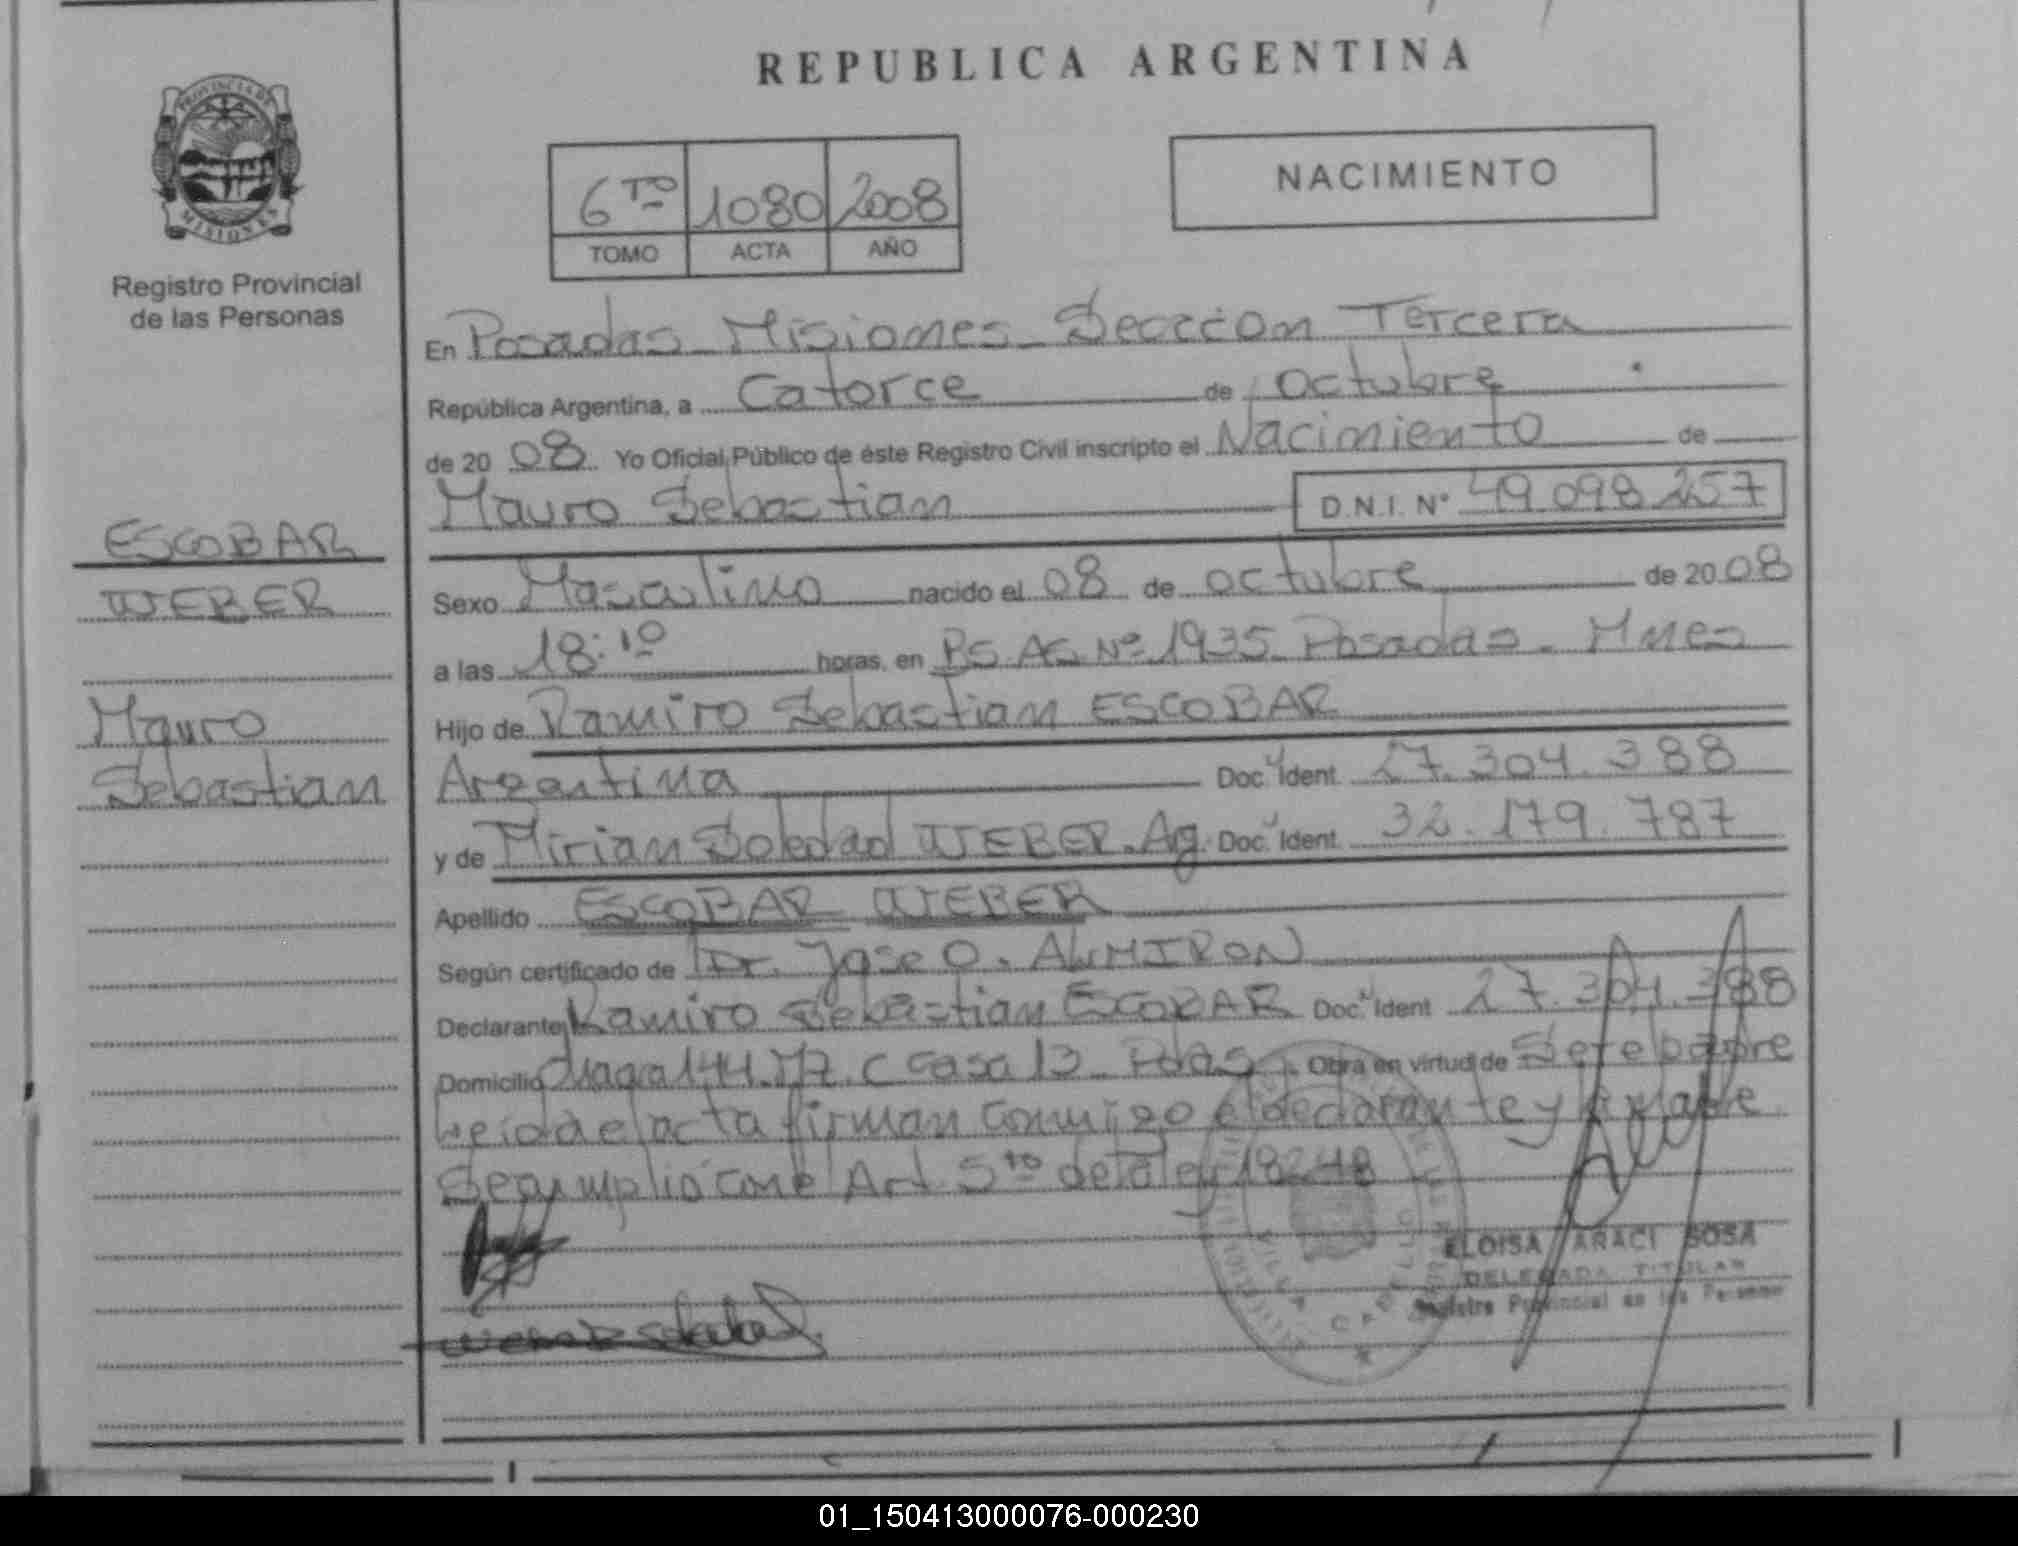 REPUBLICA ARGENTINA
PROVINCIA DE
MISIONES
Registro Provincial
de las Personas
6TO 1080 2008
TOMO ACTA AÑO
NACIMIENTO
ESCOBAR
WEBER
Mauro
Sebastian
En Posadas Misiones Seccion Tercera
República Argentina, a Catorce de octubre
de 20 08 Yo Oficial Público de éste Registro Civil inscripto el Nacimiento de
Mauro Sebastian D.N.I. Nº 49 098 257
Sexo Masculino nacido el 08 de octubre de 20 08
a las 18:10 horas, en BS.AS. Nº 1935 Posadas - Mnes
Hijo de Ramiro Sebastian ESCOBAR
Argentina Doc. Ident. 27.304.388
y de Mirian Soledad WEBER. Ag. Doc. Ident. 32.179.787
Apellido ESCOBAR WEBER
Según certificado de Dr. Jose O. ALMIRON
Declarante Ramiro Sebastian ESCOBAR Doc. Ident 27.304.388
Domicilio 144 C casa 13 Pdas. Obra en virtud de Ser el padre
Leida el acta firman conmigo el declarante y la madre
Se cumplió con el Art. 5to de la ley 18248
ELOISA ARACI SOSA
DELEGADA TITULAR
Registro Provincial de las Personas
01_150413000076-000230